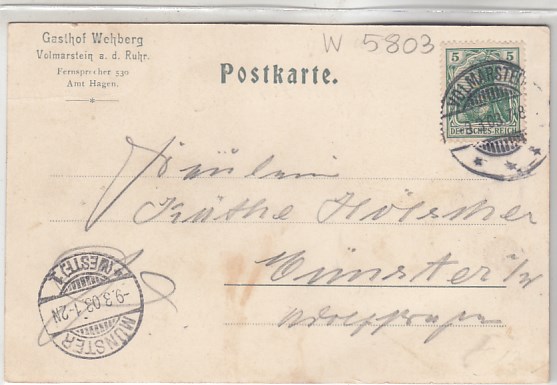 Gasthof Wehberg
Volmarstein a. d. Ruhr.
Fernsprecher 530
Amt Hagen.
W 5803
Postkarte.
5 5
DEUTSCHES REICH
VOLMARSTEIN
Fräulein
Käthe Hölscher
Münster i/W
MÜNSTER
(WESTF.) 1.
-9.3.03.1-2N